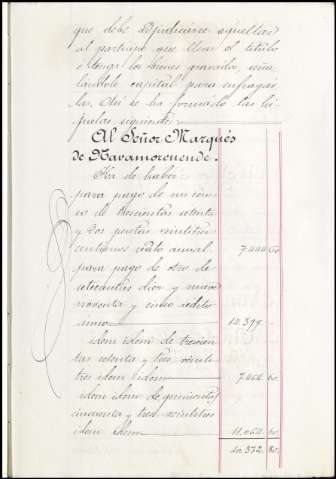 que debe adjudicarse aquellas
al participe que lleve el titulo
o tenga los bienes gravados, seña
landole capital para sufragar
las. Asi se ha formado las hi
juelas siguientes.
Al Señor Marqués
de Navamorcuende.
Ha de haber
para pago de un cen
so de trescientas setenta
y dos pesetas veintitres
centimos redito anual 7.444 60
para pago de otro de
setecientas diez y nueve
noventa y cinco redito
annuo 14.399.
idem idem de trescien
tas setenta y tres, veinti
tres idem idem 7.464 60.
idem idem de quinientas
cincuenta y tres veintitres
idem idem 11.064 60.
40.372. 80.